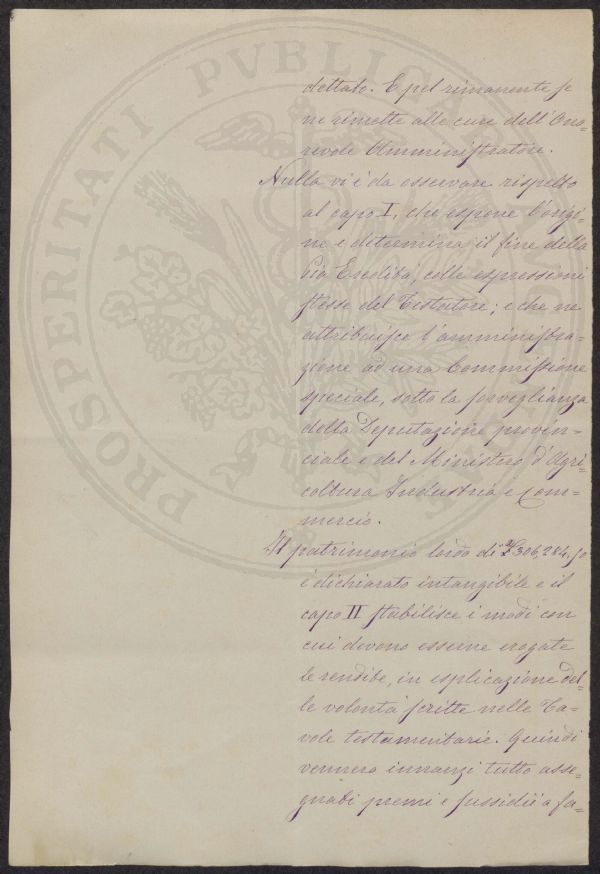 PROSPERITATI PVBLICAE
dettato. E pel rimanente se
ne rimette alle cure dell'Ono=
revole Amministratore.
Nulla vi è da osservare rispetto
al capo I, che espone l'origi=
ne e determina il fine della
Pia Eredità, colle espressioni
stesse del Testatore; e che ne
attribuisce l'amministra=
zione ad una Commissione
speciale, sotto la sorveglianza
della Deputazione provin=
ciale e del Ministero d'Agri=
coltura Industria e Com=
mercio.
Il patrimonio lordo di £306,284.50
è dichiarato intangibile e il
capo II stabilisce i modi con
cui devono esserne erogate
le rendite, in esplicazione del=
le volontà scritte nelle Ta=
vole testamentarie. Quindi
vennero innanzi tutto asse=
gnati premi e sussidii a fa=